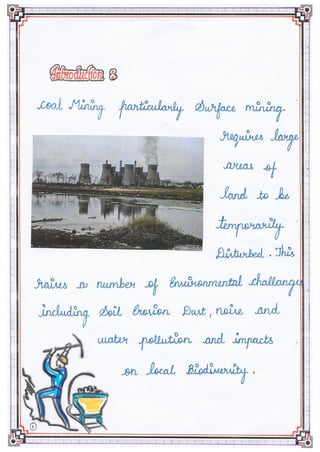 Introduction :
Coal Mining particularly Surface mining
requires large
areas of
land to be
temporarily
Disturbed . This
raises a number of Environmental challanges
including Soil Erosion Dust , noise and
water pollution and impacts
on local Biodiversity .
1